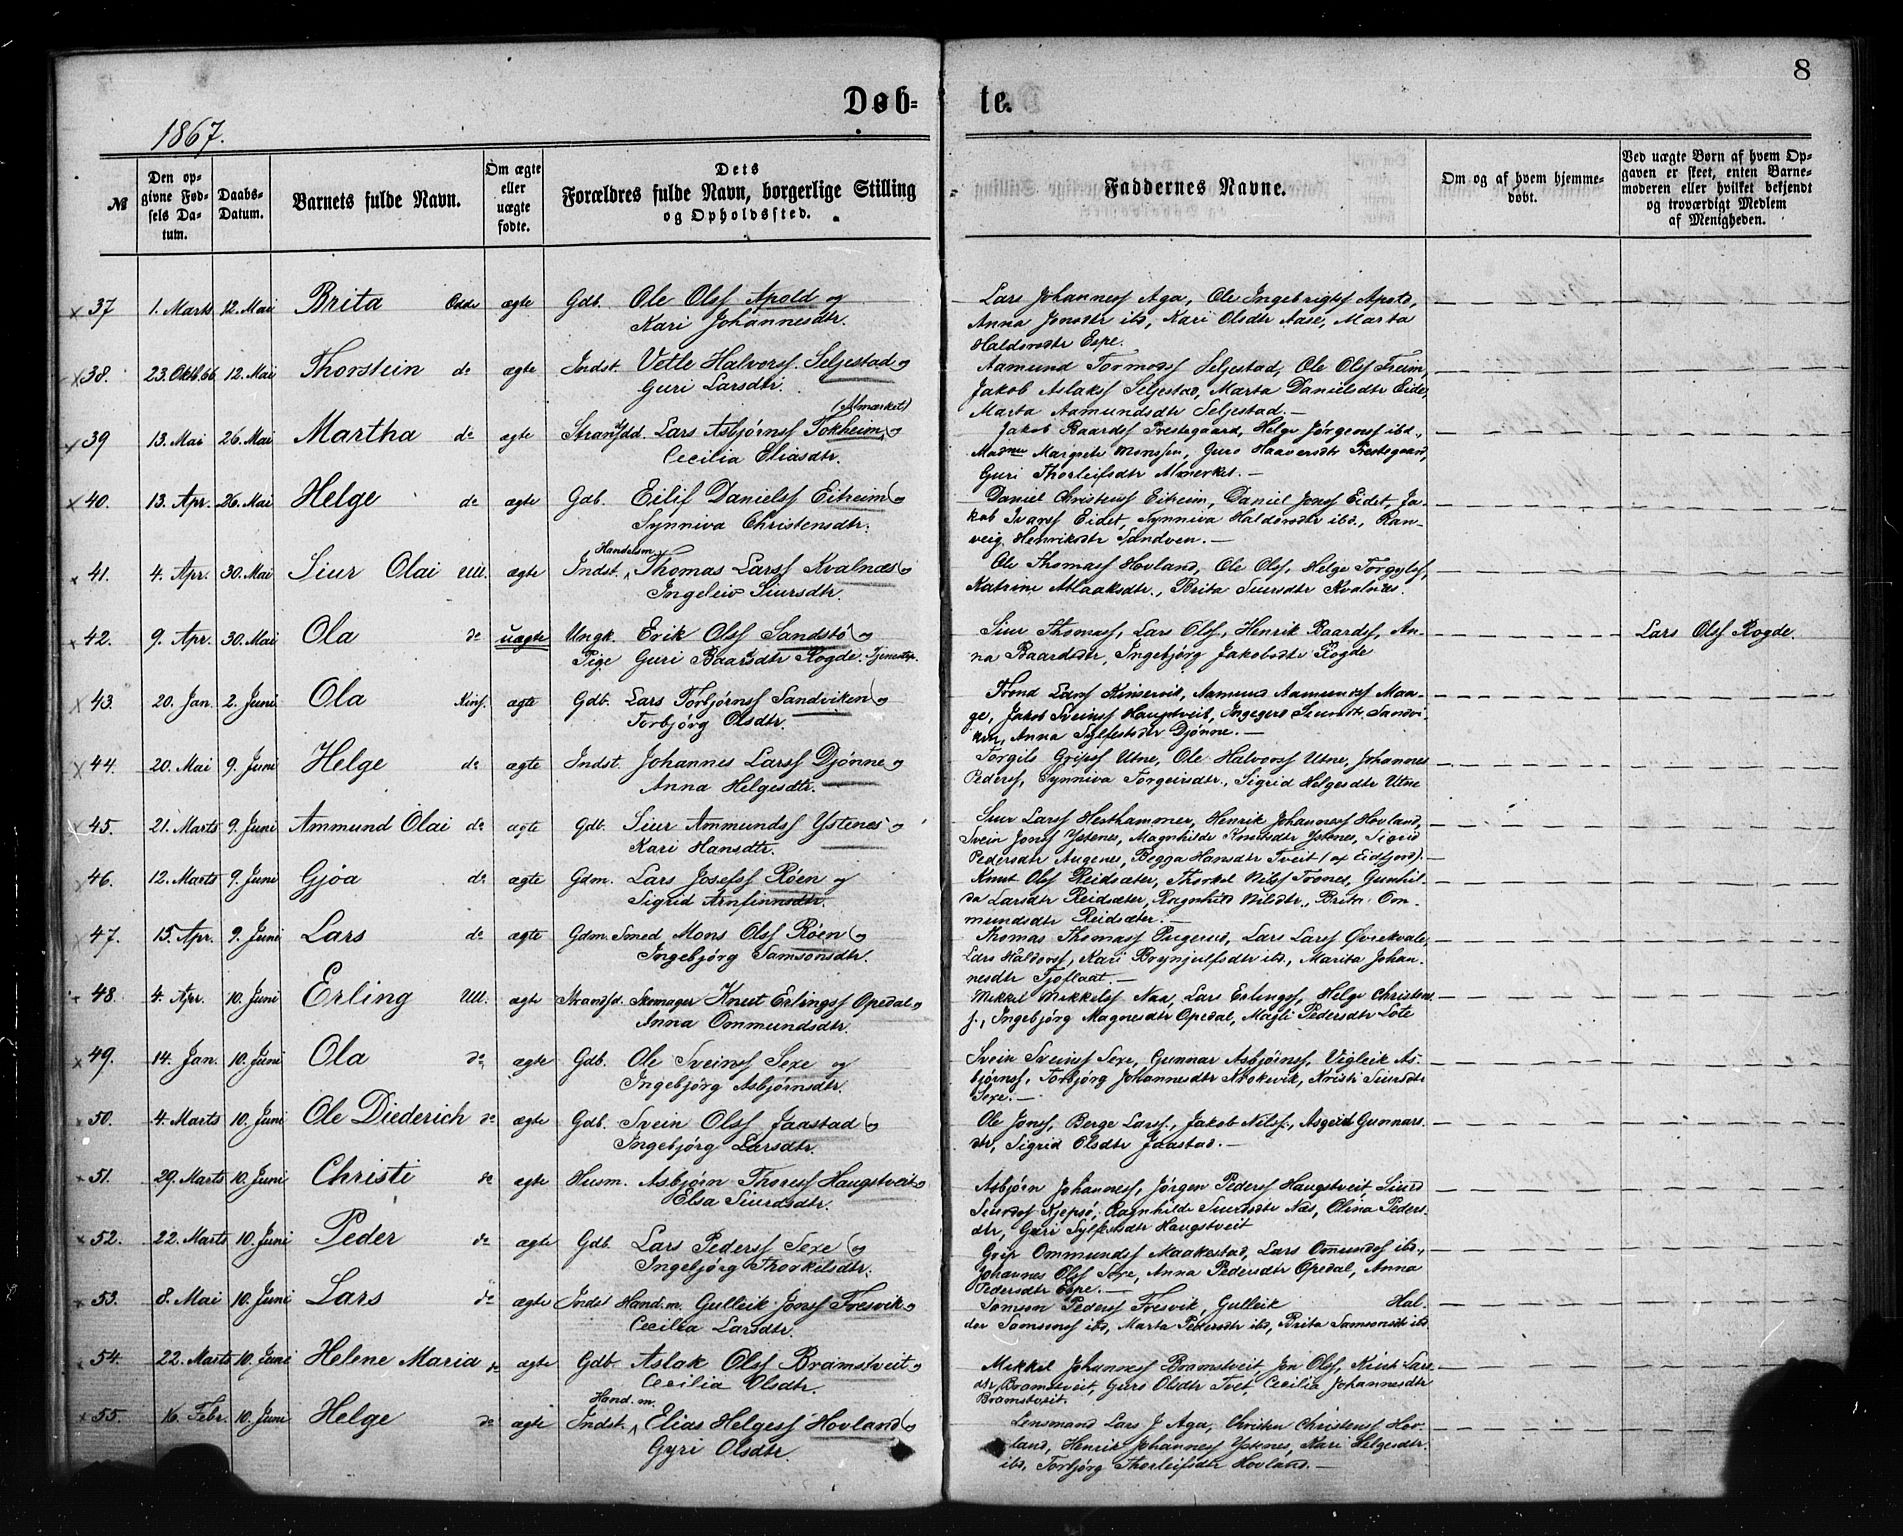 8
Døb-te.
1867.
№
Den opgivne Fødsels Datum.
Daabs-Datum.
Barnets fulde Navn.
Om ægte eller uægte fødte.
Dets Forældres fulde Navn, borgerlige Stilling og Opholdssted.
Faddernes Navne.
Om og af hvem hjemmedøbt.
Ved uægte Børn af hvem Opgaven er skeet, enten Barnemoderen eller hvilket bekjendt og troværdigt Medlem af Menigheden.
37 1. Marts 12. Mai Brita Odde ægte Gdb. Ole Olss Apold og
Kari Johannesdtr.
Lars Johanness Aga, Ole Ingebrigtss Apold,
Anna Jonsdtr ibd, Kari Olsdtr Aase, Marta
Haldorsdtr Espe.
38. 23. Oktb. 66 12. Mai Thorstein do ægte Indst. Vetle Halvorss. Seljestad og
Guri Larsdtr.
Aamund Tormodss Seljestad, Ole Olss Freim,
Jakob Aslakss Seljestad, Marta Danielsdtr Eide,
Marta Aamundsdtr Seljestad.
(Almærket)
39 13. Mai 26. Mai Martha do ægte Strandsdd. Lars Asbjørnss Tokheim og
Cecilia Eliasdtr.
Jakob Baardss Prestegaard, Helge Jørgenss ibd.,
Madme Margrete Monssen, Guro Haaversdtr Prestegaard,
Guri Thorleifsdtr Almerket.
40. 13. Apr. 26. Mai Helge do ægte Gdb. Eilif Danielss Eitreim og
Synniva Christensdtr.
Daniel Christenss Eitreim, Daniel Jonss Eidet, Ja-
kob Ivarss Eidet, Synniva Haldorsdtr ibd., Ran-
veig Henriksdtr Sandven.
Handelsm.
41. 4. Apr. 30. Mai Siur Olai Ull. ægte Indst. Thomas Larss Kvalnæs og
Ingeleiv Siursdtr.
Ole Thomass Hovland, Ole Olss, Helge Torgylss,
Katrine Aslaksdtr., Brita Siursdtr Kvalnæs.
42. 9. Apr. 30. Mai Ola do uægte Ungk. Erik Olss Sandstø og
Pige Guri Baarsdtr Rogde. Tjenestep.
Siur Thomass, Lars Olss, Henrik Baardss, An-
na Baardsdtr, Ingebjørg Jakobsdtr Rogde
Lars Olss Rogde.
43. 20. Jan. 2. Juni Ola Kins. ægte Gdb. Lars Torbjørnss Sandviken og
Torbjørg Olsdtr.
Trond Larss Kinservik, Aamund Aamundss Maa-
ge, Jakob Sveinss Haugstveit, Ingegerd Siursdtr. Sandvi-
ken, Anna Sylfestsdtr Djønne.
44. 20. Mai 9. Juni Helge do ægte Indst. Johannes Larss Djønne og
Anna Helgesdtr.
Torgils Gripss Utne, Ole Halvorss Utne, Johannes
Pederss, Synniva Torgeirsdtr., Sigrid Helgesdtr Utne
45. 21. Marts 9. Juni Ammund Olai do ægte Gdb. Siur Ammundss Ystenes og
Kari Hansdtr.
Siur Larss Hesthammer, Henrik Johanness Hovland,
Svein Jonss Ystenes, Magnhilde Knutsdtr Ystenes, Sigrid
Pedersdtr Augenes, Begga Hansdtr Tveit (af Eidfjord).
46. 12. Marts 9. Juni Gjøa do ægte Gdm. Lars Josefss Røen og
Sigrid Arnfinnsdtr.
Knut Olss Reidsæter, Thorkel Nilss Trones, Gunhil-
da Larsdtr Reidsæter, Ragnhild Nilsdtr., Brita Om-
mundsdtr Reidsæter.
47. 15. Apr. 9. Juni Lars do ægte Gdm. Smed Mons Olss Røen og
Ingebjørg Samsonsdtr.
Thomas Thomass Pugerud, Lars Larss Øvrekvale,
Lars Haldorss, Kari Brynjulfsdtr ibd, Marita Johan-
nesdtr Tjoflaat.
48. 4. Apr. 10. Juni Erling Ull. ægte Strandsd. Skomager Knut Erlingss Opedal og
Anna Ommundsdtr.
Mikkel Mikkelss Naa, Lars Erlingss, Helge Christens
s., Ingebjørg Magnesdtr Opedal, Magli Pedersdtr Lote
49. 14. Jan. 10. Juni Ola do ægte Gdb. Ole Sveinss Sexe og
Ingebjørg Asbjørnsdtr.
Svein Sveinss Sexe, Gunnar Asbjørnss, Vigleik As-
bjørnss, Torbjørg Johannesdtr Krokevik, Kristi Siursdtr
Sexe.
50. 4. Marts 10. Juni Ole Diederich do ægte Gdb. Svein Olss Jaastad og
Ingebjørg Larsdtr.
Ole Jonss, Berge Larss., Jakob Nilss., Asgerd Gunnars-
dtr, Sigrid Olsdtr Jaastad.
51. 29. Marts 10. Juni Christi do ægte Husm. Asbjørn Thoress Haugstveit og
Elsa Siurdsdtr.
Asbjørn Johanness, Jørgen Pederss Haugstveit, Siurd
Siurdss Kjepsø, Ragnhilde Siurdsdtr Næs, Olina Peders-
dtr, Guri Sylfestsdtr Haugstveit
52. 22. Marts 10. Juni Peder do ægte Gdb. Lars Pederss Sexe og
Ingebjørg Thorkelsdtr.
Grip Ommundss Maakestad, Lars Omundss ibd.,
Johannes Olss Sexe, Anna Pedersdtr Opedal, Anna
Pedersdtr Espe.
53. 8. Mai 10. Juni Lars do ægte Indst Hand.m. Gulleik Jonss Fresvik og
Cecilia Larsdtr.
Samson Pederss Fresvik, Gulleik Hal-
dor Samsonss ibd, Marta Pedersdtr ibd, Brita Samsonsdtr ibd
54. 22. Marts 10. Juni Helene Maria do ægte Gdb. Aslak Olss Bramstveit og
Cecilia Olsdtr.
Mikkel Johanness Bramstveit, Jon Olss, Kristi Lars-
dtr, Bramstveit, Guro Olsdtr Tvet, Cecilia Johannesdtr
Bramstveit.
Hand.m.
55. 16. Febr. 10. Juni Helge do ægte Indst. Elias Helgess Hovland og
Gyri Olsdtr.
Lensmand Lars J Aga, Christen Christenss Hov-
land, Henrik Johanness Ystenes, Kari Helgesdtr
ibd, Torbjørg Thorleifsdtr Hovland.